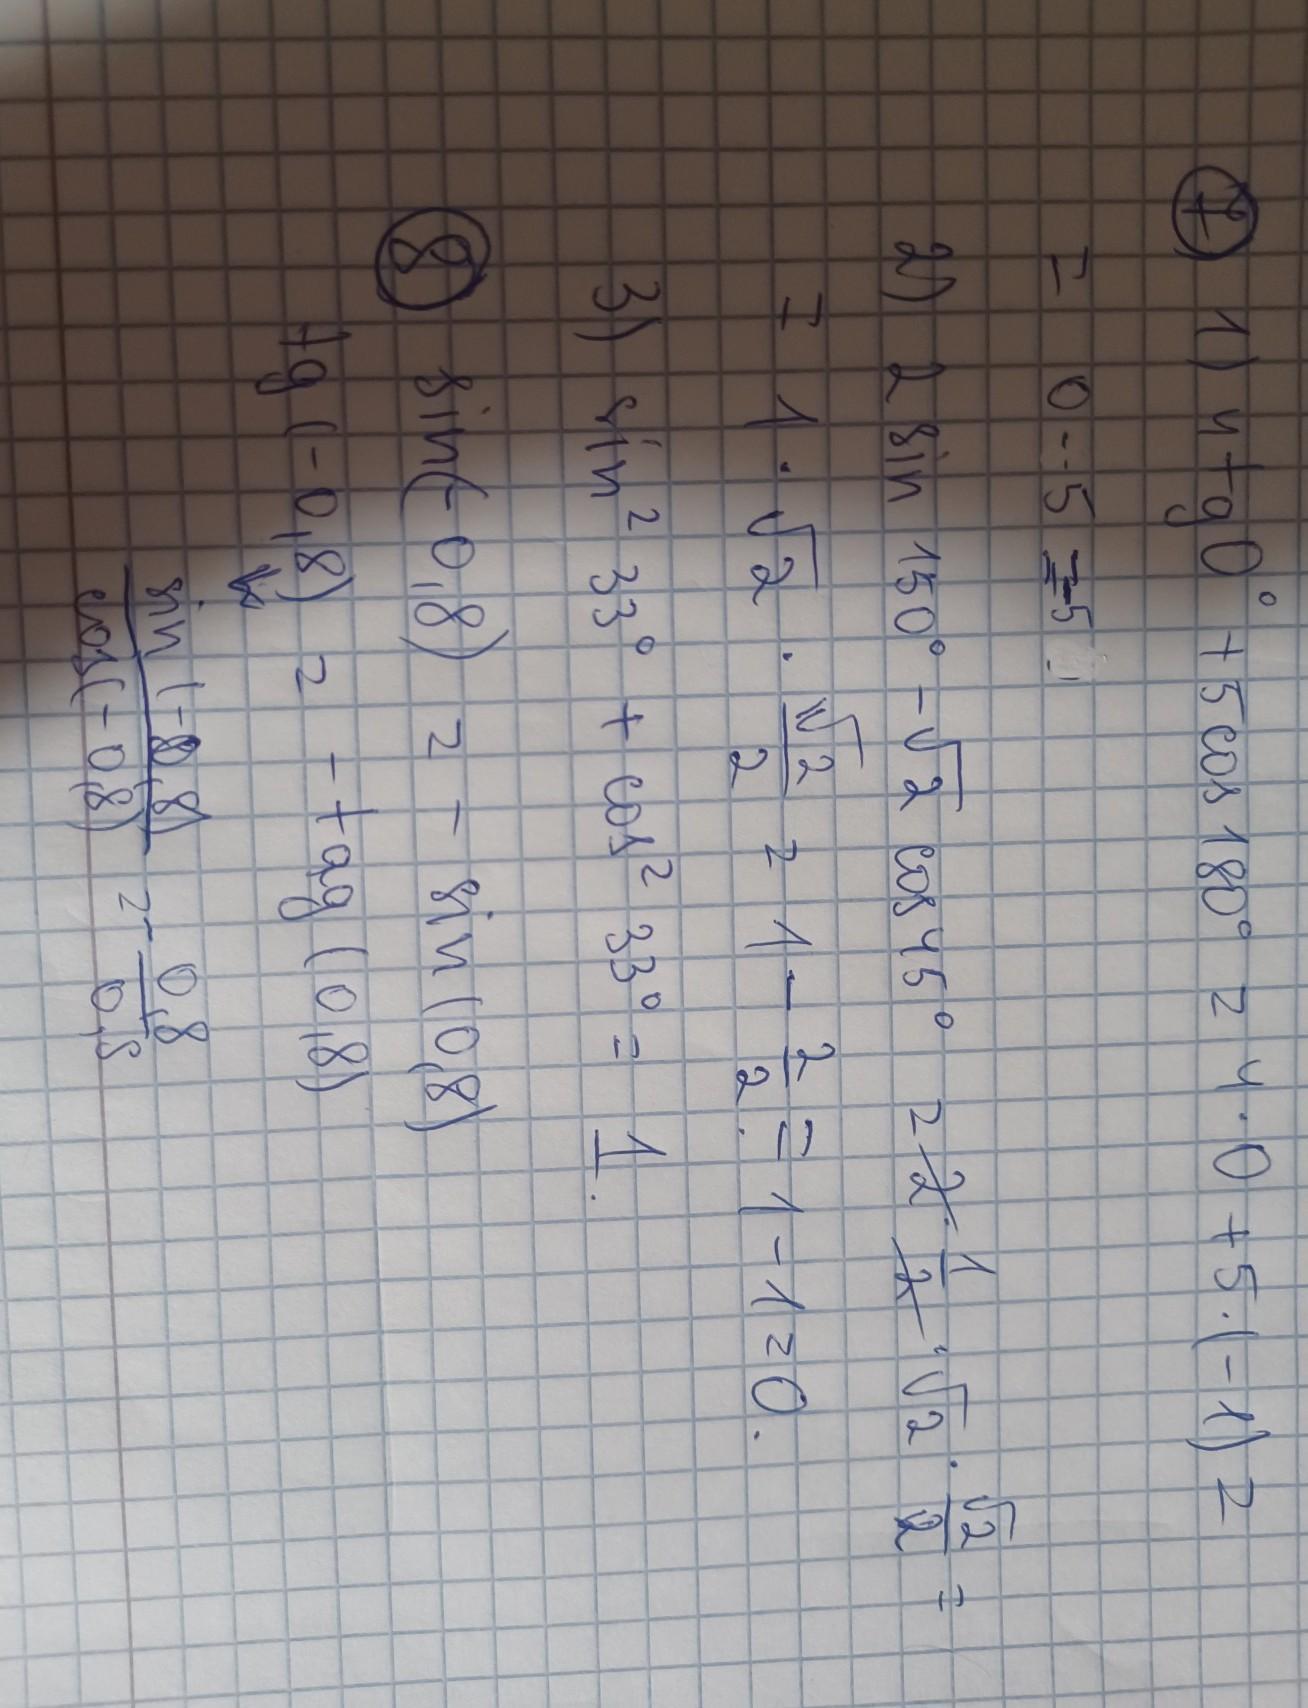 ⑦ 1) 4tg0° + 5 cos 180° = 4·0 + 5·(-1) =
= 0 - 5 = -5
2) 2 sin 150° - √2 cos 45° = 2·1/2·√2·√2/2 =
= 1·√2·√2/2 = 1 - 2/2 = 1 - 1 = 0.
3) sin² 33° + cos² 33° = 1.
⑧ sin(-0,8) = - sin (0,8)
tg (-0,8) = - tg (0,8)
sin (-0,8)/cos(-0,8) = - 0,8/0,8